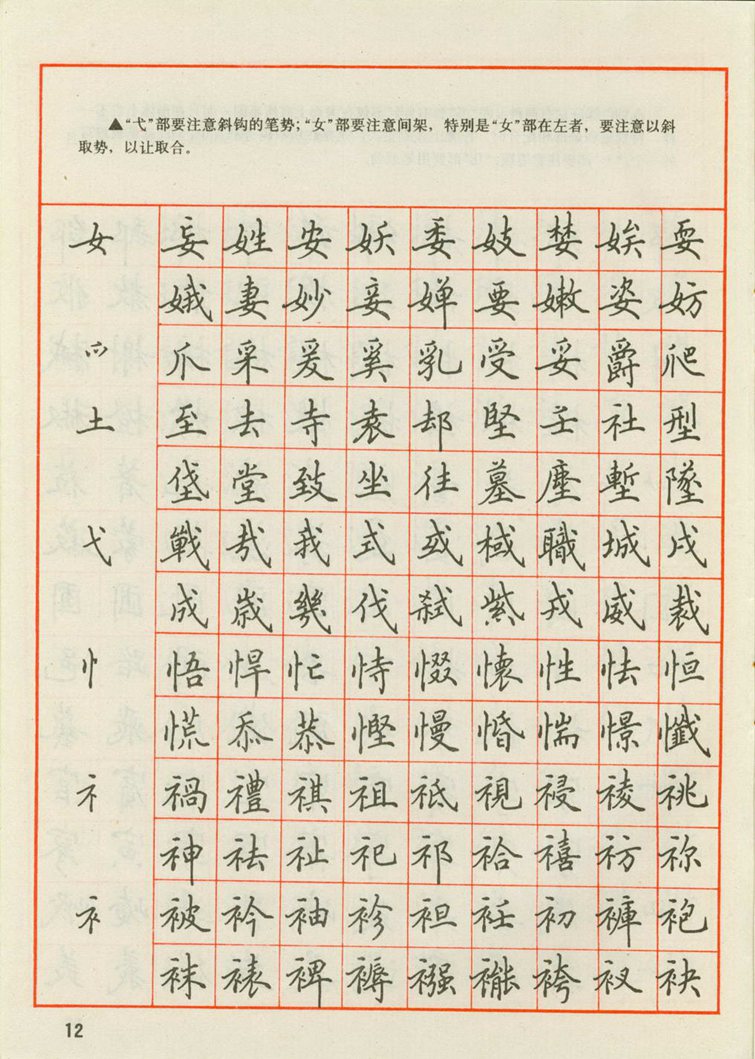 ▲“弋”部要注意斜钩的笔势；“女”部要注意间架，特别是“女”部在左者，要注意以斜
取势，以让取合。
女 妄 姓 安 妖 委 妓 婪 娭 耍
娥 妻 妙 妾 婵 要 嫩 姿 妨
爫 爪 采 爰 奚 乳 受 妥 爵 爬
土 至 去 寺 袁 却 堅 壬 社 型
垡 堂 致 坐 往 墓 塵 塹 墜
弋 戰 哉 我 式 或 域 職 城 戍
成 歲 幾 伐 弒 戎 威 裁
忄 悟 悍 忙 恃 惙 懷 性 怯 恒
慌 忝 恭 慳 慢 惛 惴 憬 懺
礻 禍 禮 祺 祖 祗 視 祲 祾 祧
神 祛 祉 祀 祁 祫 禧 祊 祢
衤 被 衿 袖 袗 袒 衽 初 褲 袍
袜 裱 裨 褥 襁 褦 袴 衩 袂
12